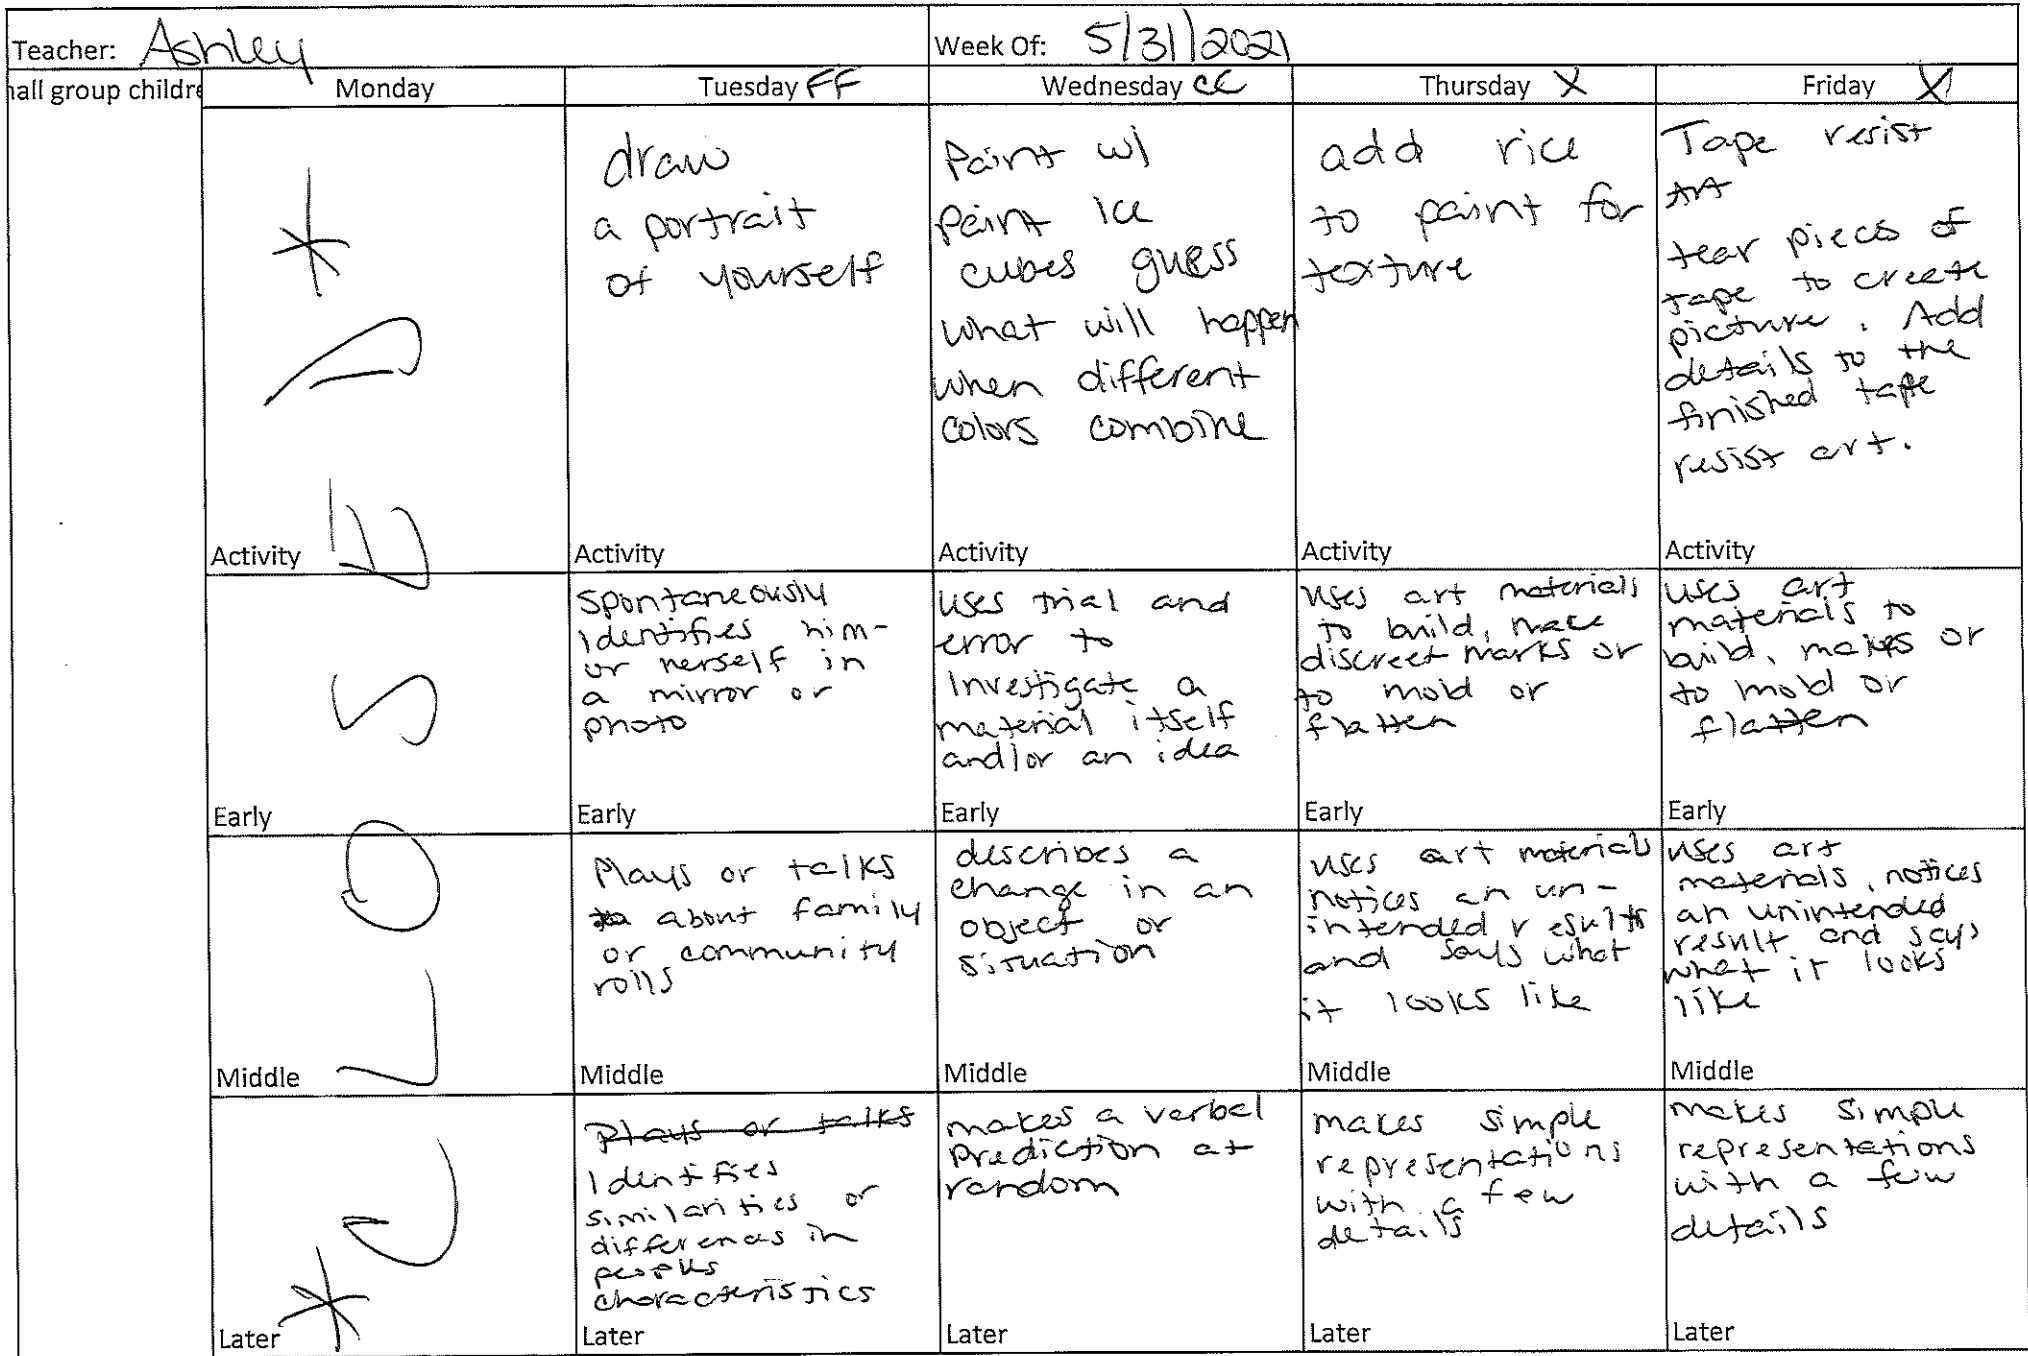 Teacher: Ashley
Week Of: 5/31/2021
nall group childre
Monday
Tuesday FF
Wednesday CC
Thursday X
Friday X
* CLOSED *
draw
a portrait
of yourself
Activity
Paint w/
paint ice
cubes guess
what will happen
when different
colors combine
Activity
add rice
to paint for
texture
Activity
Tape resist
Art
tear pieces of
tape to create
picture. Add
details to the
finished tape
resist art.
Activity
Activity
Early
Spontaneously
identifies him-
or herself in
a mirror or
photo
Early
uses trial and
error to
investigate a
material itself
and/or an idea
Early
uses art materials
to build, make
discreet marks or
to mold or
flatten
Early
uses art
materials to
build, makes or
to mold or
flatten
Early
Middle
Plays or talks
about family
or community
rolls
Middle
describes a
change in an
object or
situation
Middle
uses art materials
notices an un-
intended results
and says what
it looks like
Middle
uses art
materials, notices
an unintended
result and says
what it looks
like
Middle
Later
Plays or talks
Identifies
similarities or
differences in
peoples
characteristics
Later
makes a verbal
prediction at
random
Later
makes simple
representations
with a few
details
Later
makes simple
representations
with a few
details
Later